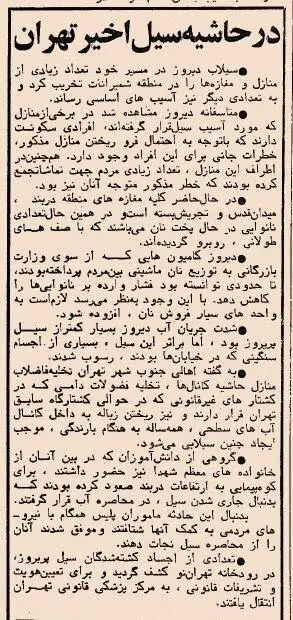 در حاشیه سیل اخیر تهران
●سیلاب دیروز در مسیر خود تعداد زیادی از
منازل و مغازه‌ها را در منطقه شمیرانات تخریب کرد و
به تعدادی دیگر نیز آسیب های اساسی رساند.
●متاسفانه دیروز مشاهده شد در برخی‌ازمنازل
که مورد آسیب سیل‌قرار گرفته‌اند، افرادی سکونت
دارند که باتوجه به احتمال فرو ریختن منازل مذکور،
خطرات جانی برای این افراد وجود دارد. همچنین‌در
اطراف این منازل ، تعداد زیادی مردم جهت تماشاتجمع
کرده بودند که خطر مذکور متوجه آنان نیز بود.
●در حال‌حاضر کلیه مغازه های منطقه دربند ،
میدان‌قدس و تجریش‌بسته است‌و در همین حال‌تعدادی
نانوایی در حال پخت نان می‌باشند که با صف هـــای
طولانی ، روبرو گردیده‌اند.
●دیروز کامیون هایی که از سوی وزارت
بازرگانی به توزیع نان ماشینی بین‌مردم پرداخته‌بودند،
تا حدودی توانسته بود فشار وارده بر نانوایی‌ها را
کاهش دهد. با این وجود به‌نظر می‌رسد لازم‌است به
واحد های سیار فروش نان ، افزوده شود.
●شدت جریان آب دیروز بسیار کمتراز سیـــل
پریروز بود ، اما براثر این سیل ، بسیاری از اجسام
سنگینی که در خیابان‌ها بودند ، رسوب شدند.
●به گفته اهالی جنوب شهر تهران تخلیه‌فاضلاب
منازل حاشیه کانال‌ها ، تخلیه فضولات دامی کــه در
کشتار های غیرقانونی که در حوالی کشتارگاه سابق
تهران قرار دارند و نیز ریختن زباله به داخل کانـال
آب های سطحی ، همه‌ساله به هنگام بارندگی ، موجب
ایجاد چنین سیلابی می‌شود.
●گروهی از دانش‌آموزان که در بین آنـان از
خانواده های معظم شهدا نیز حضور داشتند ، برای
کوه‌پیمایی به ارتفاعات دربند صعود کرده بودند کــه
بدنبال جاری شدن سیل ، در محاصره آب قرار گرفتند.
بدنبال این حادثه ماموران پلیس همگام با نیرو-
های مردمی به کمک آنها شتافتند وموفق شدند آنان
را از محاصره سیل نجات دهند.
●تعدادی از اجساد کشته‌شدگان سیل پریروز،
در رودخانه تهران‌نو کشف گردید و برای تعیین‌هویت
و تشریفات قانونی ، به مرکز پزشکی قانونی تهــران
انتقال یافتند.